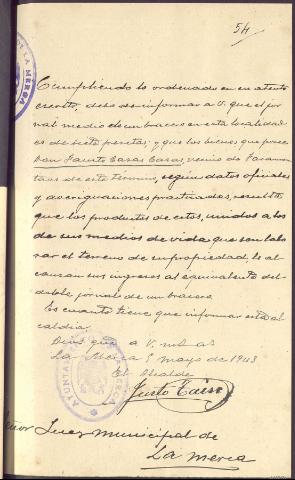 54
DE LA MERCA
Cumpliendo lo ordenado en su atento
escrito, debo de informar a V. que el jor
nal medio de un bracero en esta localidad
es de siete pesetas; y que los bienes que posee
Don Casas Casas, vecino de
de este término, según datos oficiales
y averiguaciones practicadas, resulta
que los productos de estos, unidos a los
de sus medios de vida que son labo
rar el terreno de su propiedad, le al
canzan sus ingresos al equivalente del
doble jornal de un bracero.
Es cuanto tiene que informar esta al
caldía.
Dios que a V. m.s a.s
La Merca 5 mayo de 1943
El Alcalde
Justo
AYUNTAMIENTO
Señor Juez municipal de
La Merca